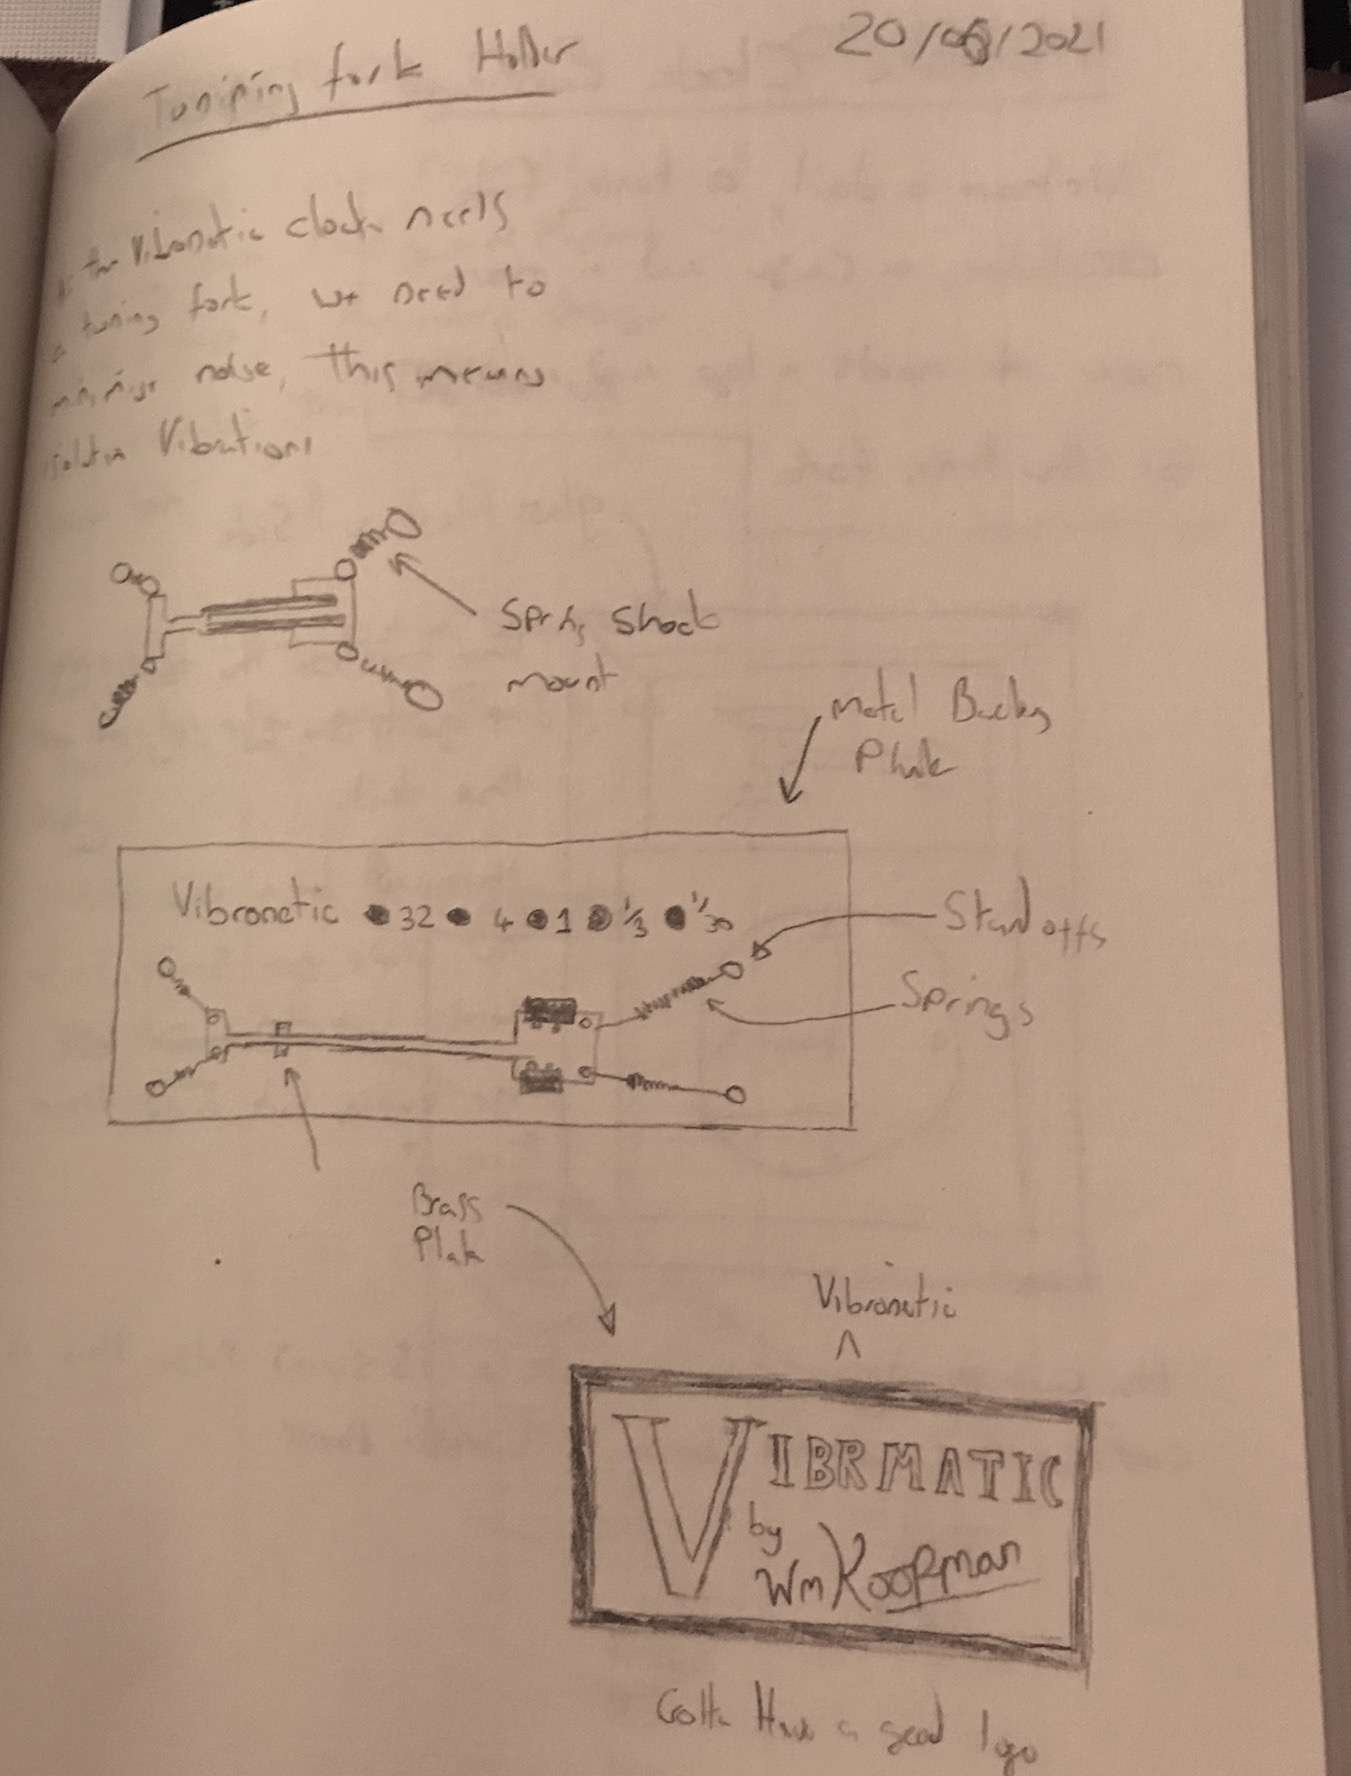 Tuniping fork Holder
20/06/2021
the Vibronatic clock needs
a tuning fork, we need to
minimise noise, this means
isolatin Vibrations
Spring Shock
mount
Metal Backing
Plate
Vibronatic 32 4 1 1/3 1/30
Stand offs
Springs
Brass
Plate
Vibronatic
^
VIBRMATIC
by
Wm Koopman
Gotta Have a good logo